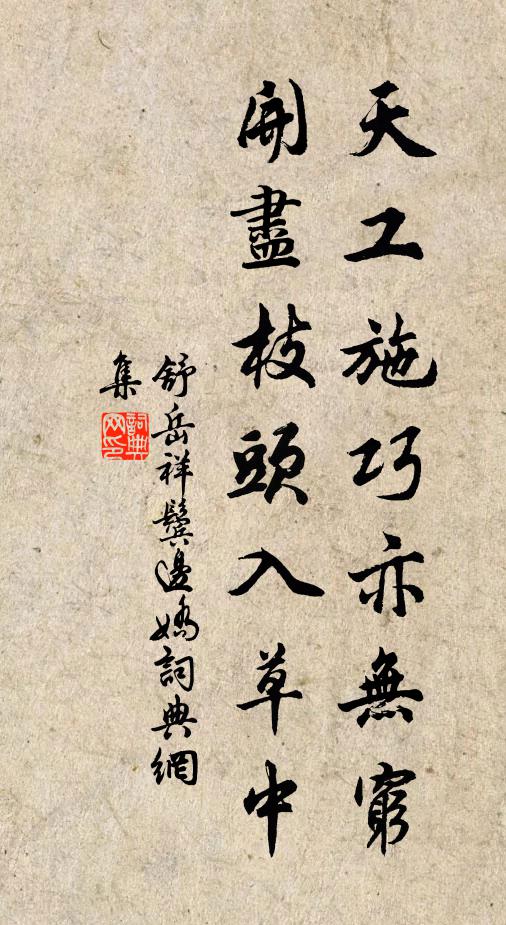 天工施巧亦無窮
開盡枝頭入草中
舒岳祥鬢邊嬌詞典網
集
詞典网印